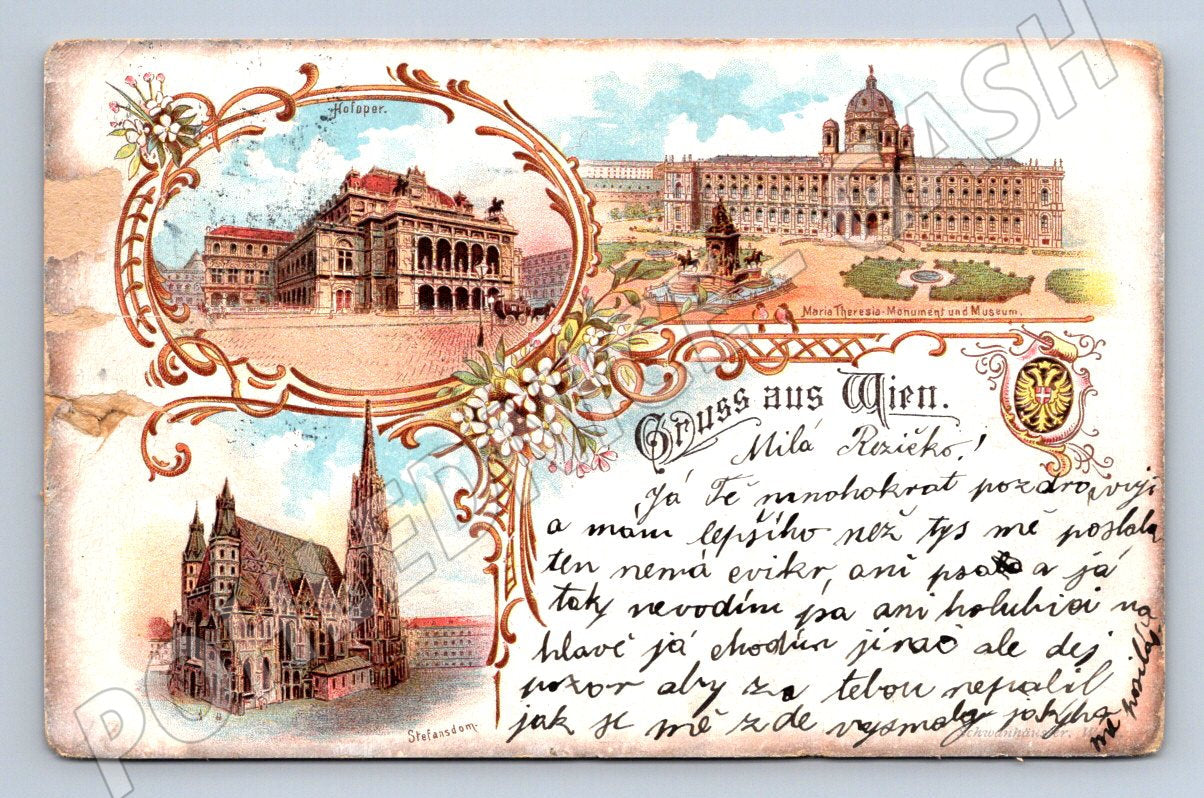 Hofoper.
Maria Theresia-Monument und Museum.
Gruss aus Wien.
Stefansdom
Milá Rezičko!
Já Tě mnohokrat pozdravuji
a mám lepšího než tys mě poslala
ten nemá cvikr, ani psa a já
taky nevodím psa ani holubici na
hlavě já chodím jinač ale dej
pozor aby za tebou nepálil
jak se mě zde vysmály jakyho
mě posíláš
Schwanhäusser.